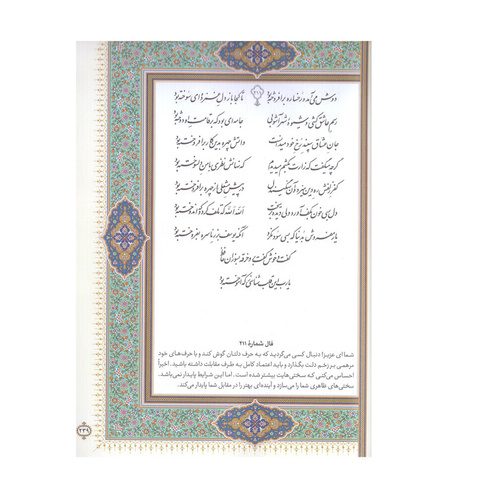 دوش می‌آمد و رخساره برافروخته بود تا کجا باز دل غمزده‌ای سوخته بود
رسم عاشق کشی و شیوه شهرآشوبی جامه‌ای بود که بر قامت او دوخته بود
جان عشاق سپند رخ خود می‌دانست و آتش چهره بدین کار برافروخته بود
گرچه می‌گفت که زارت بکشم می‌دیدم که نهانش نظری با من دلسوخته بود
کفر زلفش ره دین می‌زد و آن سنگین دل در پیش مشعلی از چهره برافروخته بود
دل بسی خون بکف آورد ولی دیده بریخت الله الله که تلف کرد و که اندوخته بود
یار مفروش بدنیا که بسی سود نکرد آنکه یوسف بزر ناسره بفروخته بود
گفت و خوش گفت برو خرقه بسوزان حافظ
یا رب این قلب شناسی ز که آموخته بود
فال شمارهٔ ۲۱۱
شما ای عزیز! دنبال کسی می‌گردید که به حرف دلتان گوش کند و با حرف‌های خود
مرهمی بر زخم دلت بگذارد و باید اعتماد کامل به طرف مقابلت داشته باشید. اخیراً
احساس می‌کنی که سختی‌هایت بیشتر شده است. اما این شرایط پایدار نمی‌باشد.
سختی‌های ظاهری شما را می‌سازد و آینده‌ای بهتر را در مقابل شما پایدار می‌کند.